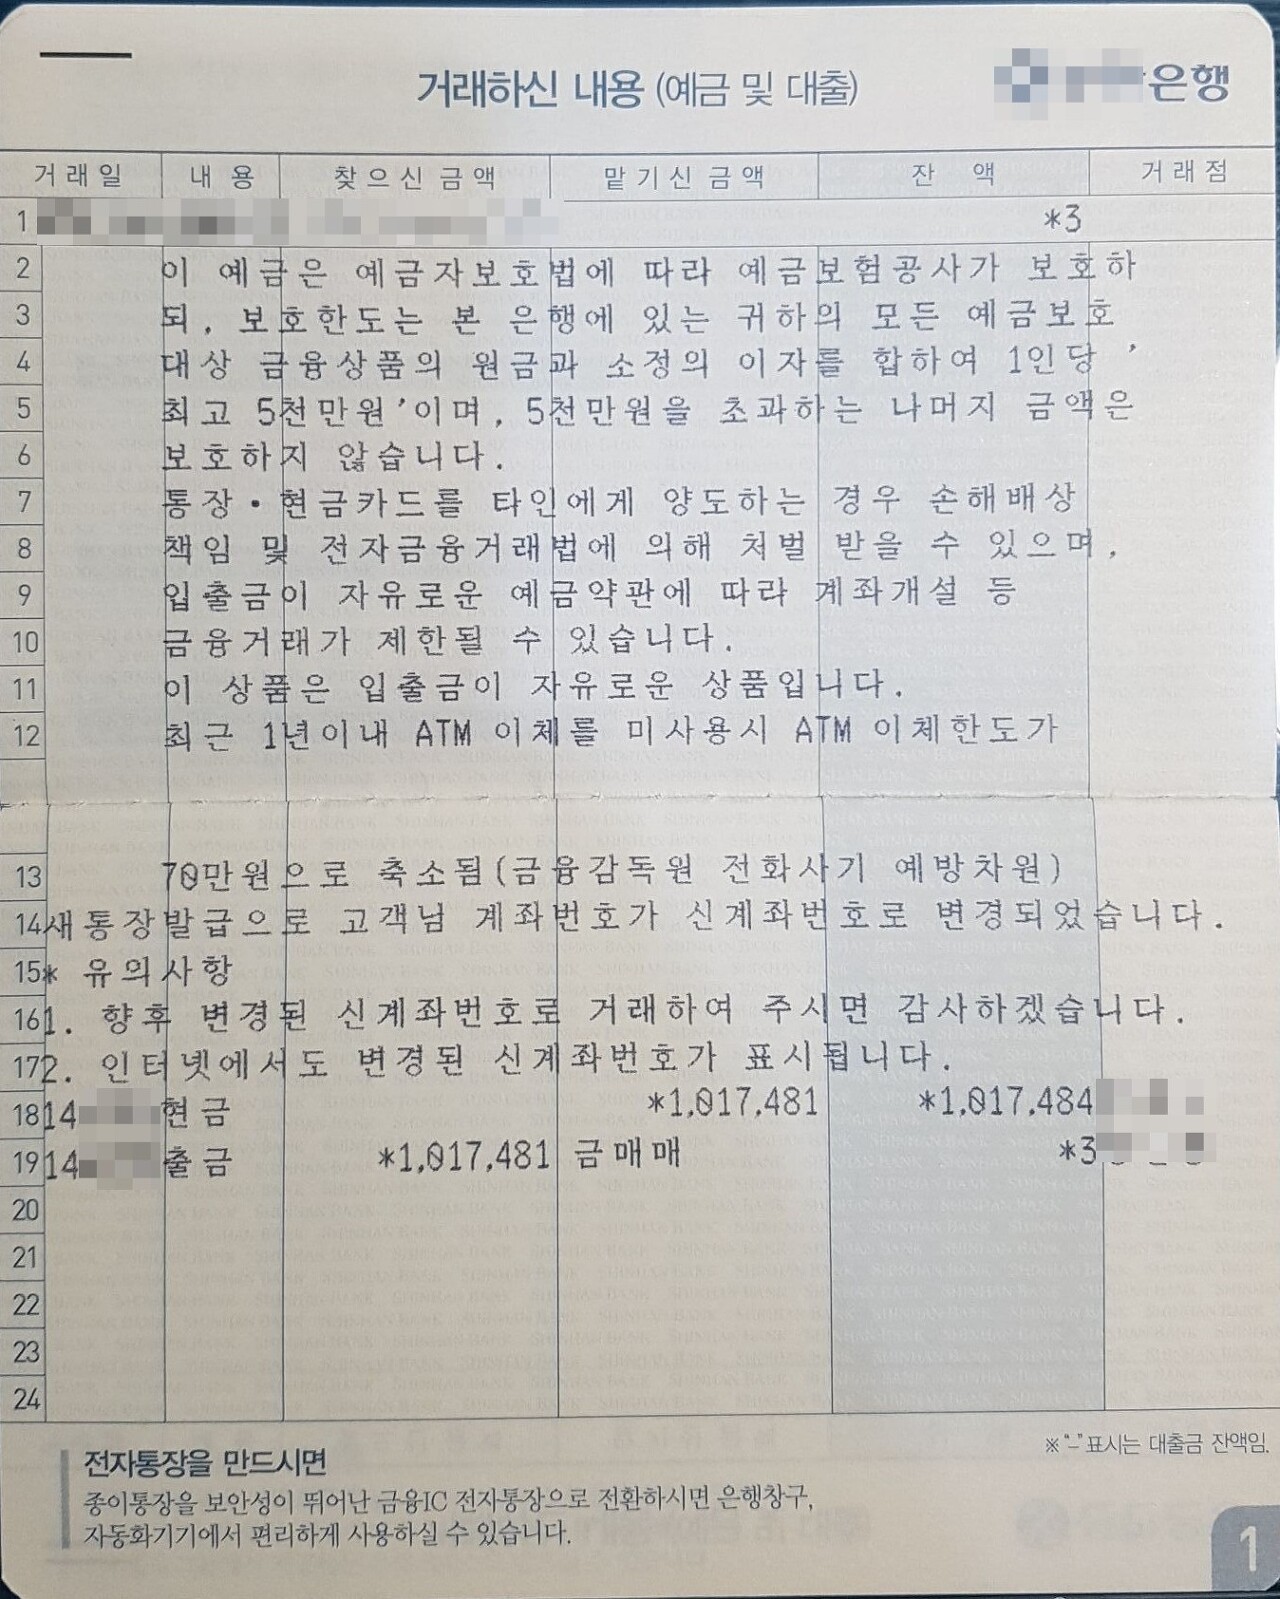 거래하신 내용 (예금 및 대출) 은행
거래일 내용 찾으신 금액 맡기신 금액 잔액 거래점
1 *3
2 이 예금은 예금자보호법에 따라 예금보험공사가 보호하
3 되, 보호한도는 본 은행에 있는 귀하의 모든 예금보호
4 대상 금융상품의 원금과 소정의 이자를 합하여 1인당 '
5 최고 5천만원'이며, 5천만원을 초과하는 나머지 금액은
6 보호하지 않습니다.
7 통장·현금카드를 타인에게 양도하는 경우 손해배상
8 책임 및 전자금융거래법에 의해 처벌 받을 수 있으며,
9 입출금이 자유로운 예금약관에 따라 계좌개설 등
10 금융거래가 제한될 수 있습니다.
11 이 상품은 입출금이 자유로운 상품입니다.
12 최근 1년이내 ATM 이체를 미사용시 ATM 이체한도가
13 70만원으로 축소됨(금융감독원 전화사기 예방차원)
14 새통장발급으로 고객님 계좌번호가 신계좌번호로 변경되었습니다.
15 * 유의사항
16 1. 향후 변경된 신계좌번호로 거래하여 주시면 감사하겠습니다.
17 2. 인터넷에서도 변경된 신계좌번호가 표시됩니다.
18 14 현금 *1,017,481 *1,017,484
19 14 출금 *1,017,481 금매매 *3
20
21
22
23
24
※ "–"표시는 대출금 잔액임.
전자통장을 만드시면
종이통장을 보안성이 뛰어난 금융IC 전자통장으로 전환하시면 은행창구,
자동화기기에서 편리하게 사용하실 수 있습니다.
1